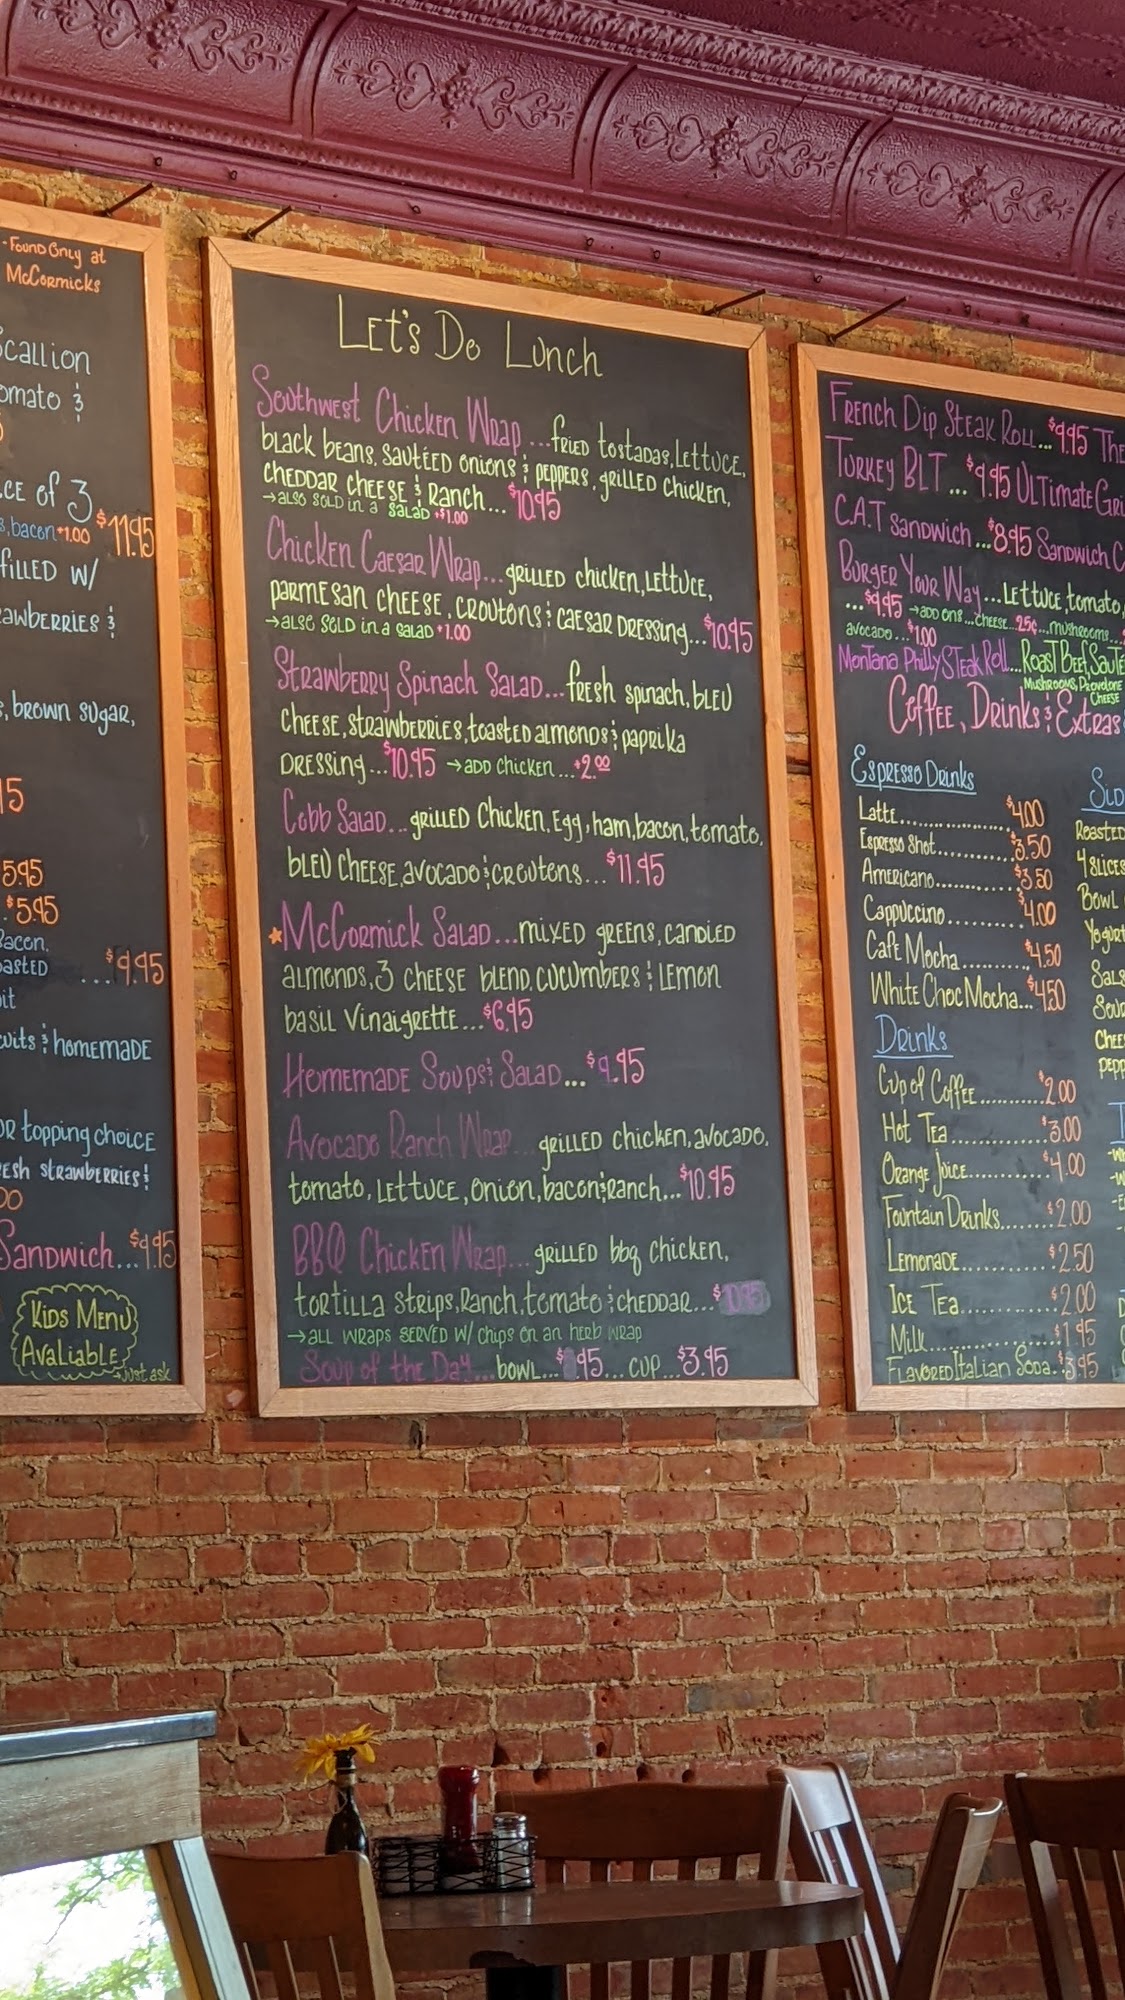 - Found Only at
McCormicks
Scallion
omato &
ce of 3
s, bacon +1.00 $11.95
filled w/
rawberries &
s, brown sugar,
5.95
$5.95
Bacon,
oasted ...$9.95
it
cuits & homemade
or topping choice
esh strawberries &
Sandwich...$9.95
Kids Menu
Avaliable
→ Just ask
Let's Do Lunch
Southwest Chicken Wrap ...fried tostadas, lettuce,
black beans, sautéed onions & peppers, grilled chicken,
cheddar cheese & Ranch... $10.95
→also sold in a salad +$1.00
Chicken Caesar Wrap...grilled chicken, lettuce,
parmesan cheese, croutons & caesar dressing...$10.95
→also sold in a salad +1.00
Strawberry Spinach Salad...fresh spinach, bleu
cheese, strawberries, toasted almonds & paprika
dressing...$10.95 →add chicken...+2.00
Cobb Salad...grilled chicken, egg, ham, bacon, tomato,
bleu cheese, avocado & croutons...$11.95
McCormick Salad...mixed greens, candied
almonds, 3 cheese blend, cucumbers & lemon
basil vinaigrette...$6.95
Homemade Soups & Salad...$9.95
Avocado Ranch Wrap...grilled chicken, avocado,
tomato, lettuce, onion, bacon & ranch...$10.95
BBQ Chicken Wrap...grilled bbq chicken,
tortilla strips, Ranch, tomato & cheddar...$10.95
→all wraps served w/ chips on an herb wrap
Soup of the Day...bowl...$ .95...cup...$3.95
French Dip Steak Roll...$9.95 The
Turkey BLT...$9.95 Ultimate Gri
C.A.T sandwich...$8.95 Sandwich C
Burger Your Way...Lettuce, tomato,
...$9.95 →add ons...cheese...25¢...mushrooms...
avocado...$1.00
Montana Philly Steak Roll...Roast Beef, Saute
Mushrooms, Provolone
Cheese
Coffee, Drinks & Extras
Espresso Drinks
Latte...$4.00
Espresso Shot...$3.50
Americano...$3.50
Cappuccino...$4.00
Cafe Mocha...$4.50
White Choc Mocha...$4.50
Drinks
Cup of Coffee...$2.00
Hot Tea...$3.00
Orange Juice...$4.00
Fountain Drinks...$2.00
Lemonade...$2.50
Ice Tea...$2.00
Milk...$1.95
Flavored Italian Soda...$3.95
Sid
Roasted
4 slices
Bowl
Yogurt
Sals
Sour
Chee
pepp